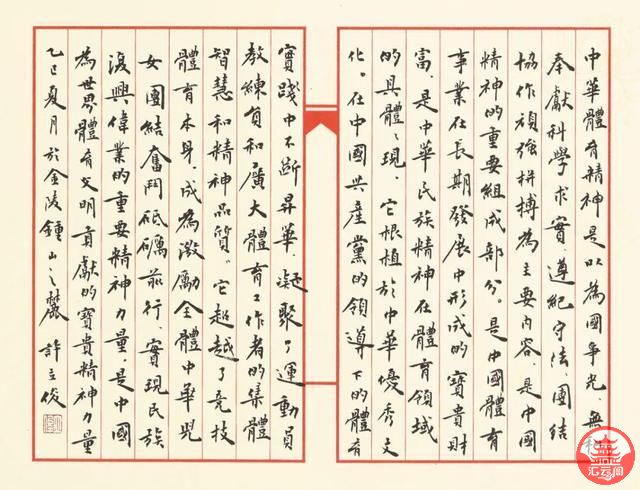 中華體育精神是以為國爭光、無私
奉獻科學求實、遵紀守法、團結
協作頑強拼搏為主要內容、是中國
精神的重要組成部分。是中國體育
事業在長期發展中形成的寶貴財
富、是中華民族精神在體育領域
的具體〻現、它根植於中華優秀文
化。在中國共產黨的領導下的體育
實踐中不斷昇華、凝聚了運動員
教練員和廣大體育工作者的集體
智慧和精神品質。它超越了競技
體育本身成為激勵全體中華兒
女團結奮鬥砥礪前行、實現民族
復興偉業的重要精神力量是中國
為世界體育文明貢獻的寶貴精神力量
乙巳夏月於金陵鍾山之麓 許立俊
汇云阁